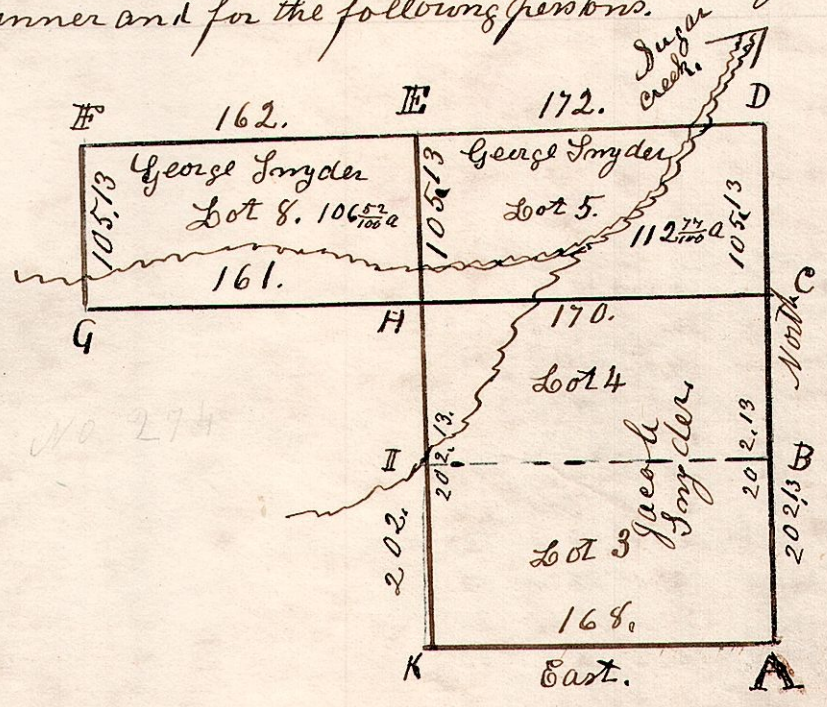 anner and for the following persons.
Sugar
creek.
F 162. E 172. D
George Snyder
Lot 8. 106 52/100 a
105,13
161.
George Snyder
Lot 5.
112 77/100 a
105,13
105,13
G H 170. C
North
Lot 4
Jacob
Snyder
202.13
202.13
I B
No 274
202.
202,13
Lot 3
168.
K East. A